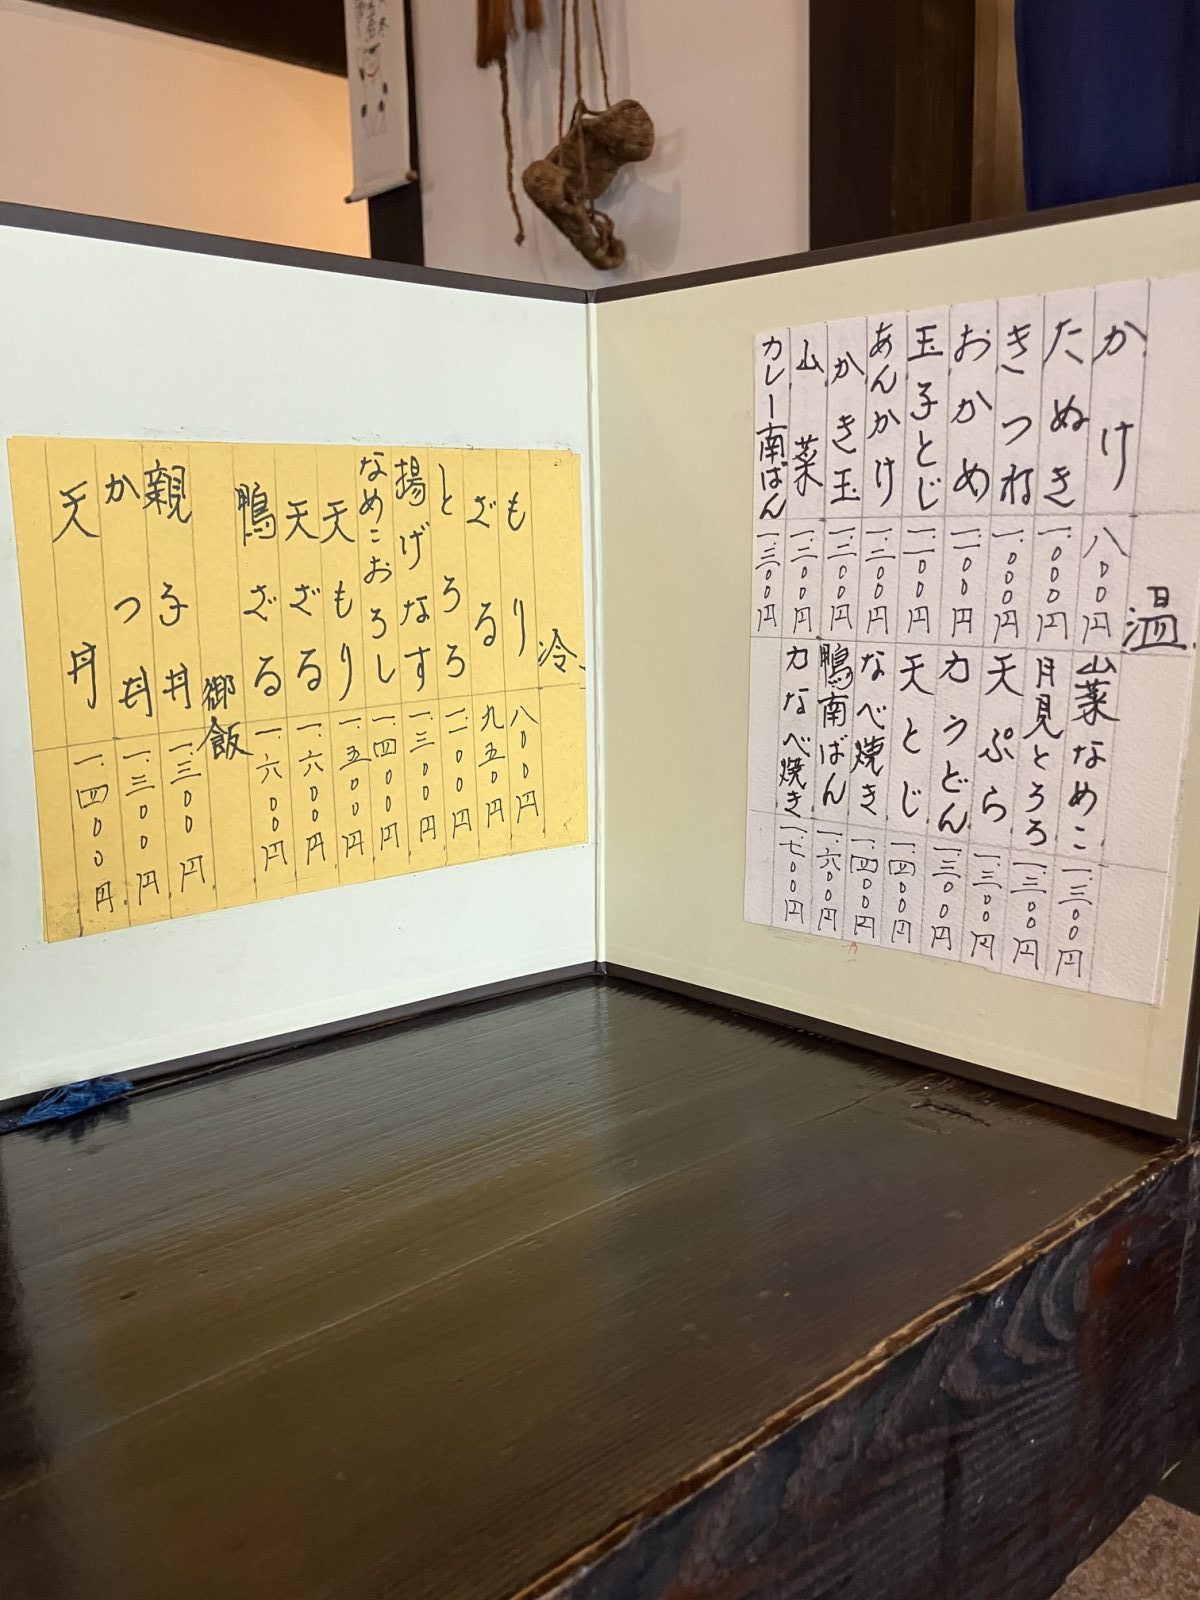 温
かけ 八〇〇円
たぬき 一、〇〇〇円
きつね 一、〇〇〇円
おかめ 一、一〇〇円
玉子とじ 一、一〇〇円
あんかけ 一、二〇〇円
かき玉 一、二〇〇円
山菜 一、二〇〇円
カレー南ばん 一、三〇〇円
山菜なめこ 一、三〇〇円
月見とろろ 一、三〇〇円
天ぷら 一、三〇〇円
力うどん 一、三〇〇円
天とじ 一、四〇〇円
なべ焼き 一、四〇〇円
鴨南ばん 一、六〇〇円
力なべ焼き 一、七〇〇円
冷
もり 八〇〇円
ざる 九五〇円
とろろ 一、一〇〇円
揚げなす 一、三〇〇円
なめこおろし 一、四〇〇円
天もり 一、五〇〇円
天ざる 一、六〇〇円
鴨ざる 一、六〇〇円
御飯
親子丼 一、三〇〇円
かつ丼 一、三〇〇円
天丼 一、四〇〇円